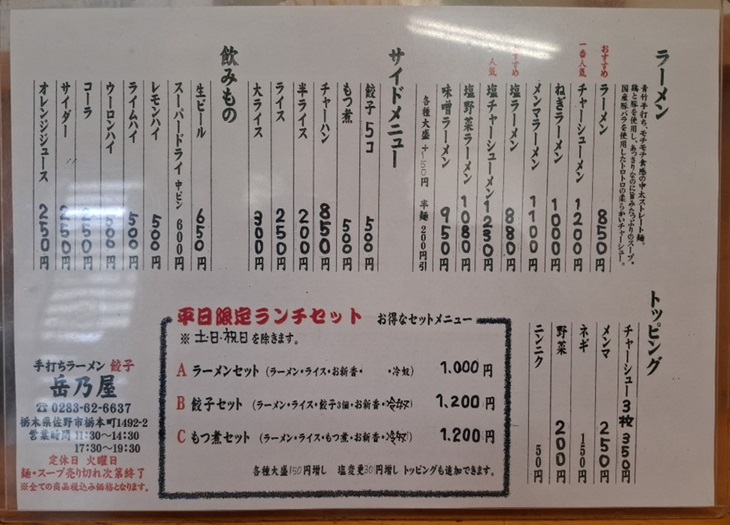 ラーメン
青竹手打ち、モチモチ食感の中太ストレート麺。
鶏と豚を使用し、あっさりなのに旨みたっぷりのスープ。
国産豚バラを使用したトロトロの柔らかいチャーシュー。
おすすめ
ラーメン 850円
一番人気
チャーシューメン 1200円
ねぎラーメン 1000円
メンマラーメン 1100円
おすすめ
塩ラーメン 880円
人気
塩チャーシューメン 1230円
塩野菜ラーメン 1080円
味噌ラーメン 950円
各種大盛 +150円 半麺 200円引
サイドメニュー
餃子5コ 500円
もつ煮 500円
チャーハン 850円
半ライス 200円
ライス 250円
大ライス 300円
飲みもの
生ビール 650円
スーパードライ 中ビン 600円
レモンハイ 500円
ライムハイ 500円
ウーロンハイ 500円
コーラ 250円
サイダー 250円
オレンジジュース 250円
トッピング
チャーシュー3枚 350円
メンマ 250円
ネギ 150円
野菜 200円
ニンニク 50円
平日限定ランチセット お得なセットメニュー
※ 土・日・祝日を除きます。
A ラーメンセット (ラーメン・ライス・お新香・ ・冷奴) 1,000円
B 餃子セット (ラーメン・ライス・餃子3個・お新香・冷奴) 1,200円
C もつ煮セット (ラーメン・ライス・もつ煮・お新香・冷奴) 1,200円
各種大盛150円増し 塩変更30円増し トッピングも追加できます。
手打ちラーメン 餃子
岳乃屋
☎ 0283-62-6637
栃木県佐野市栃本町1492-2
営業時間 11:30〜14:30
17:30〜19:30
定休日 火曜日
麺・スープ売り切れ次第終了
※全ての商品税込み価格となります。